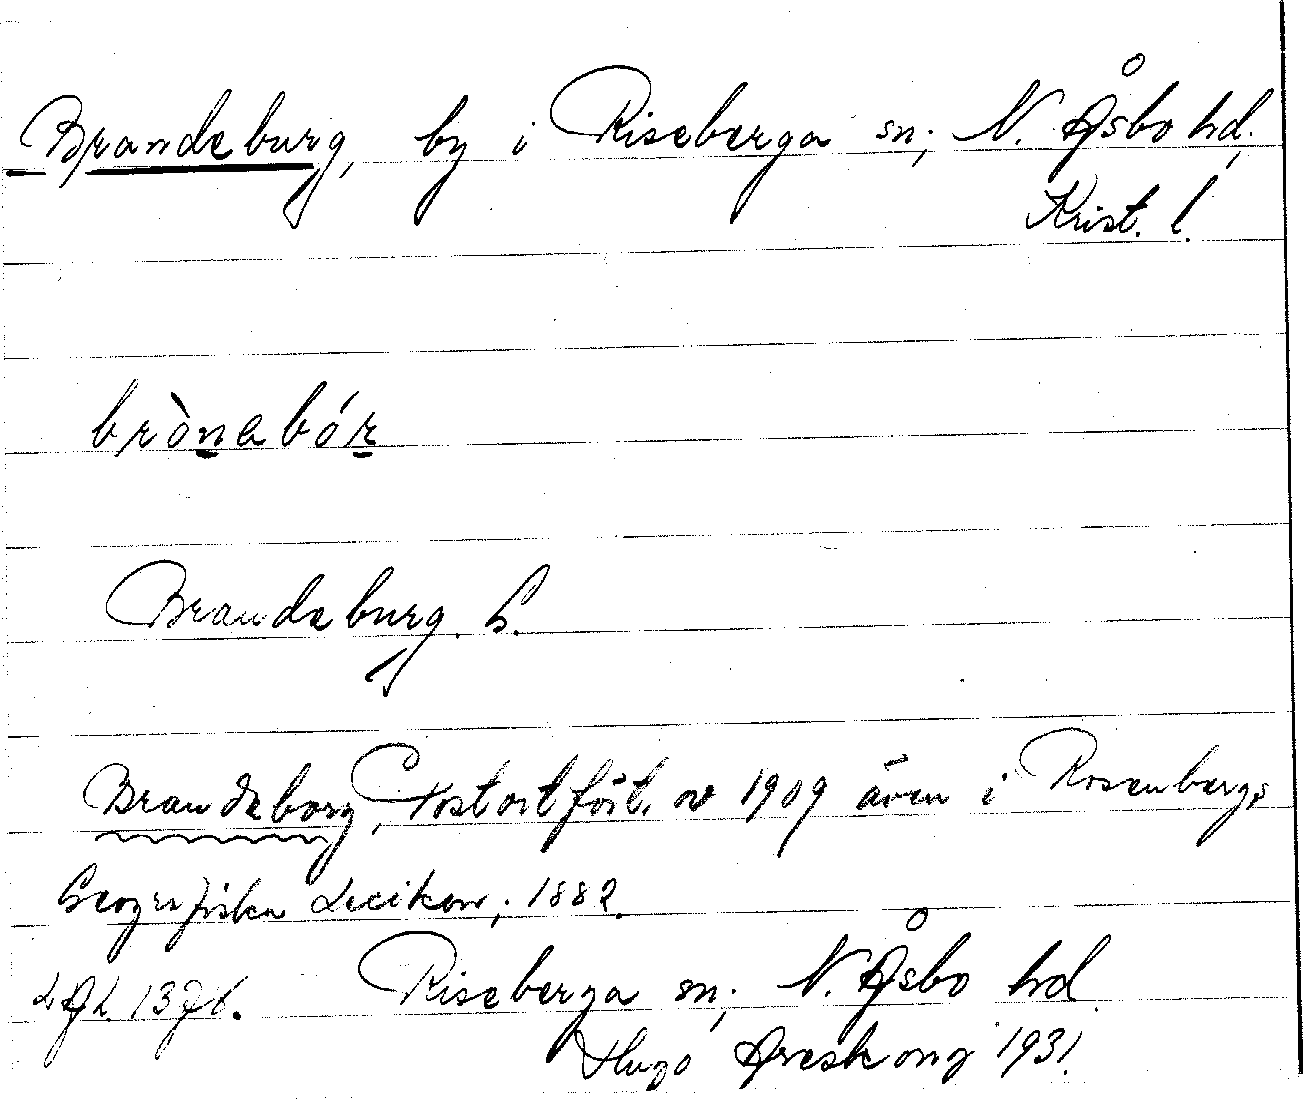 Brandeburg, by i Riseberga sn; N. Åsbo hd.
Krist. l.
brònabór
Brandeburg. G.
Brandeborg, Postortfört. av 1909 även i Rosenbergs
Geografiska Lecikon, 1882.
Riseberga sn; N. Åsbo hd.
Hugo Areskoug 1931.